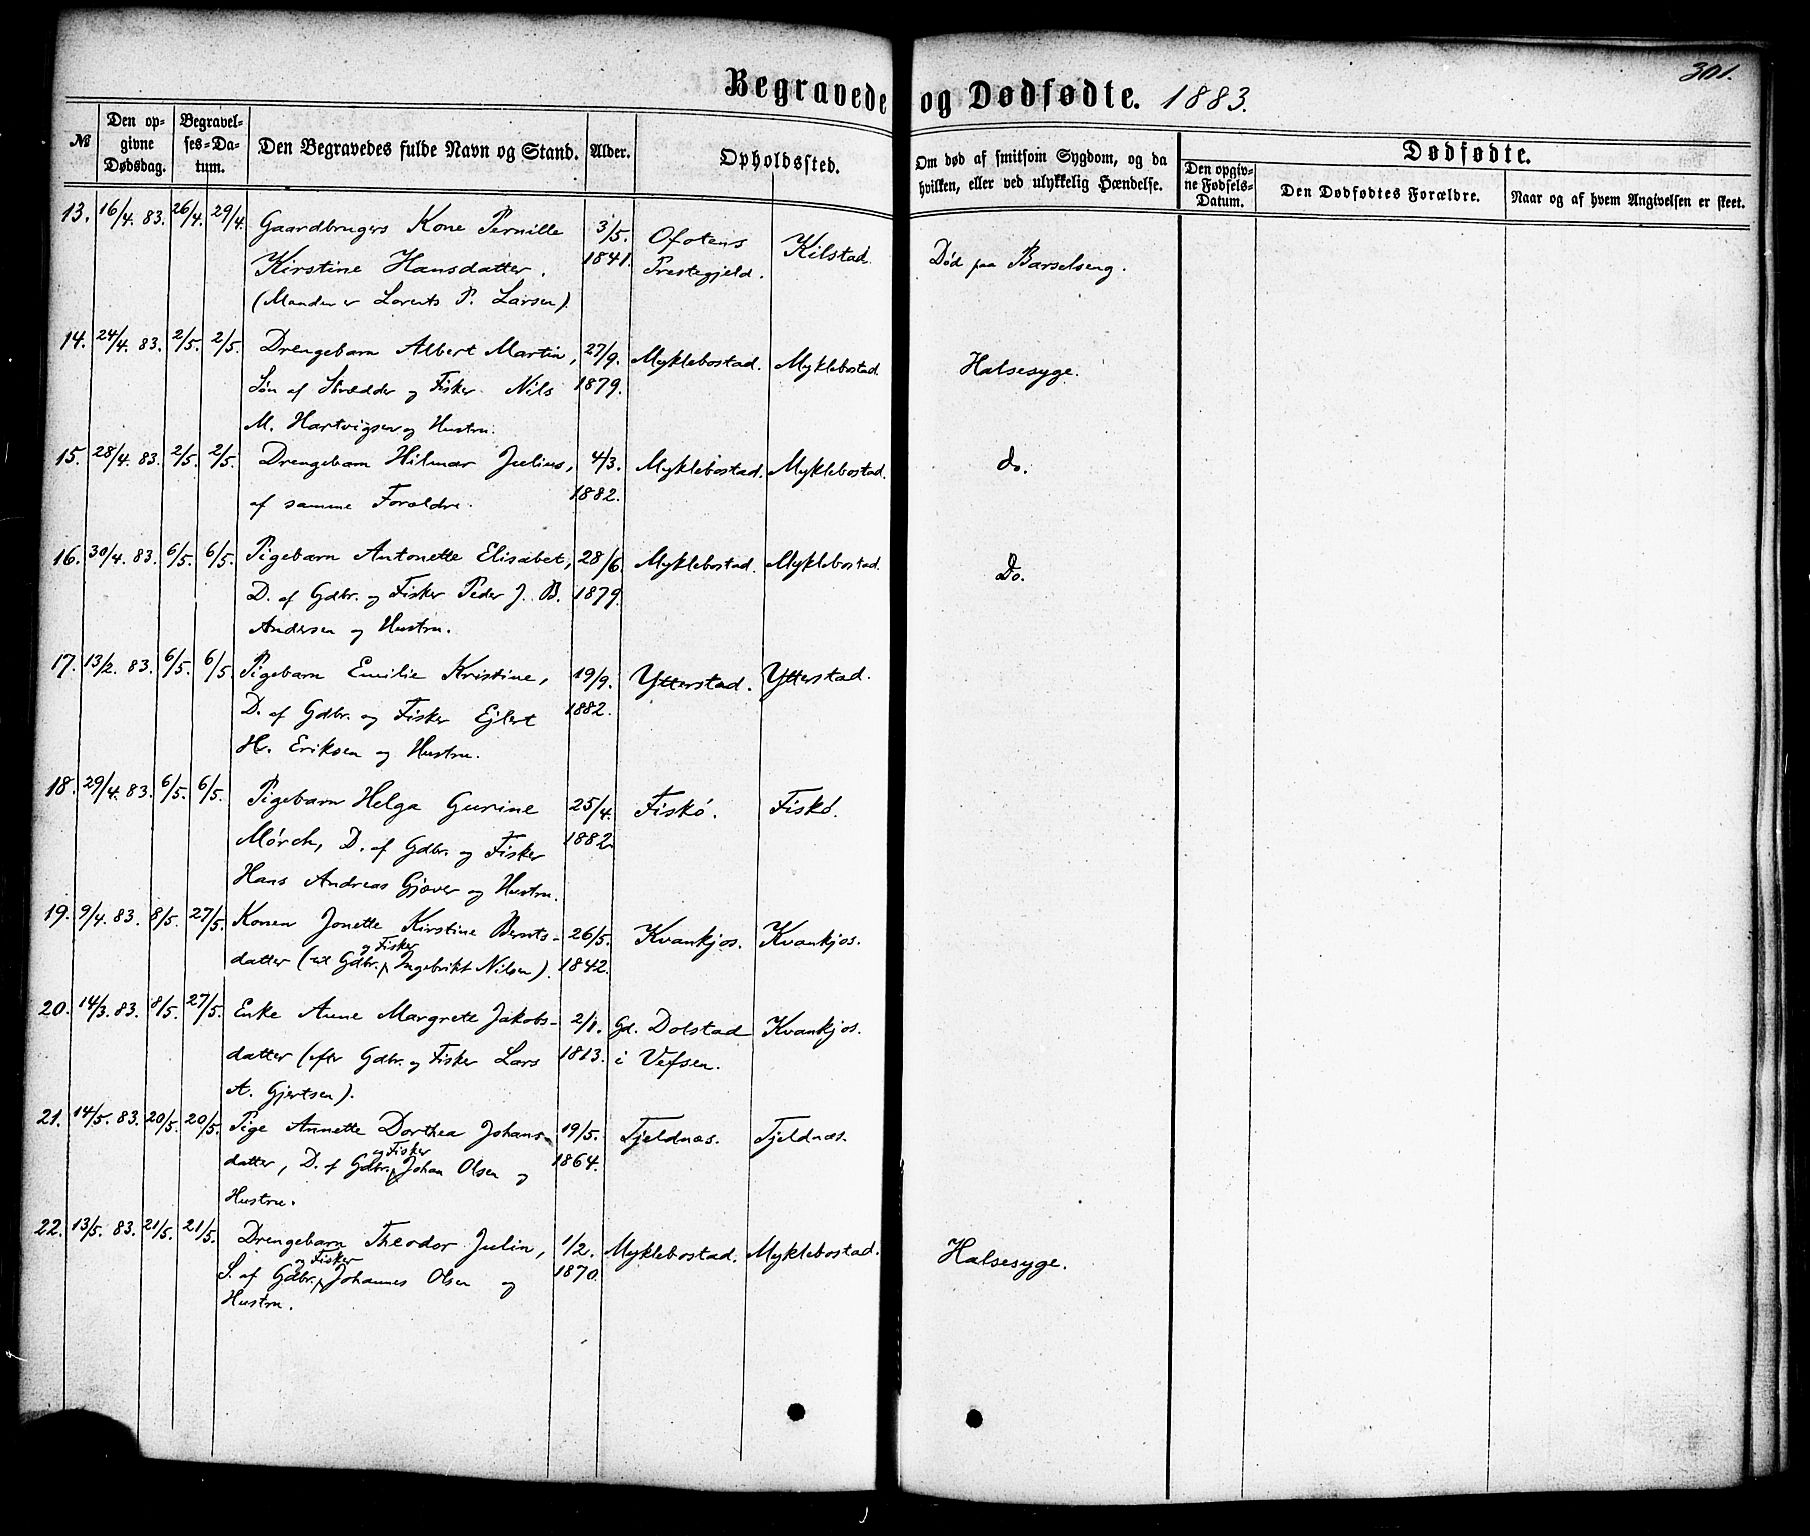 301.
Begravede og Dødfødte. 1883.
№ Den opgivne Dødsdag. Begravelses-Datum. Den Begravedes fulde Navn og Stand. Alder. Opholdssted. Om død af smitsom Sygdom, og da hvilken, eller ved ulykkelig Hændelse. Dødfødte.
Den opgivne Fødsels-Datum. Den Dødfødtes Forældre. Naar og af hvem Angivelsen er skeet.
13. 16/4. 83. 26/4. 29/4. Gaardbrugers Kone Pernille 3/5. Ofotens Kilstad. Død paa Barselseng.
Kirstine Hansdatter. 1841. Prestegjeld.
(Manden er Lorents P. Larsen).
14. 24/4. 83. 2/5. 2/5. Drengebarn Albert Martin, 27/9. Myklebostad. Myklebostad. Halsesyge.
Søn af Strædder og Fisker Nils 1879.
M. Hartvigsen og Hustru.
15. 28/4. 83. 2/5. 2/5. Drengebarn Hilmar Julius, 4/3. Myklebostad. Myklebostad. do.
af samme Forældre. 1882.
16. 30/4. 83. 6/5. 6/5. Pigebarn Antonette Elisabet, 28/6. Myklebostad. Myklebostad. Do.
D. af Gdbr. og Fisker Peder J. B. 1879.
Andersen og Hustru.
17. 13/2. 83. 6/5. 6/5. Pigebarn Emilie Kristine, 19/9. Ytterstad. Ytterstad.
D. af Gdbr. og Fisker Ejlert 1882.
H. Eriksen og Hustru.
18. 29/4. 83. 6/5. 6/5. Pigebarn Helga Gurine 25/4. Fiskø. Fiskø.
Mørch, D. af Gdbr. og Fisker 1882
Hans Andreas Gjæver og Hustru.
19. 9/4. 83. 8/5. 27/5. Konen Jonette Kirstine Bernts- 26/5. Kvankjos. Kvankjos.
datter (til Gdbr. og Fisker Ingebrikt Nilsen). 1842.
20. 14/3. 83. 8/5. 27/5. Enke Anne Margrete Jakobs- 2/1. Gd. Dolstad Kvankjos.
datter (efter Gdbr. og Fisker Lars 1813. i Vefsen.
A. Gjertsen).
21. 14/5. 83. 20/5. 20/5. Pige Annette Dorthea Johans- 19/5. Tjeldnæs. Tjeldnæs.
datter, D. af Gdbr. og Fisker Johan Olsen og 1864.
Hustru.
22. 13/5. 83. 21/5. 21/5. Drengebarn Theodor Julin, 1/2. Myklebostad. Myklebostad. Halsesyge.
S. af Gdbr. og Fisker Johannes Olsen og 1870.
Hustru.